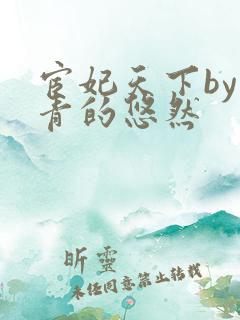 宦妃天下by
青的悠然
昕靈
未经同意禁止转载